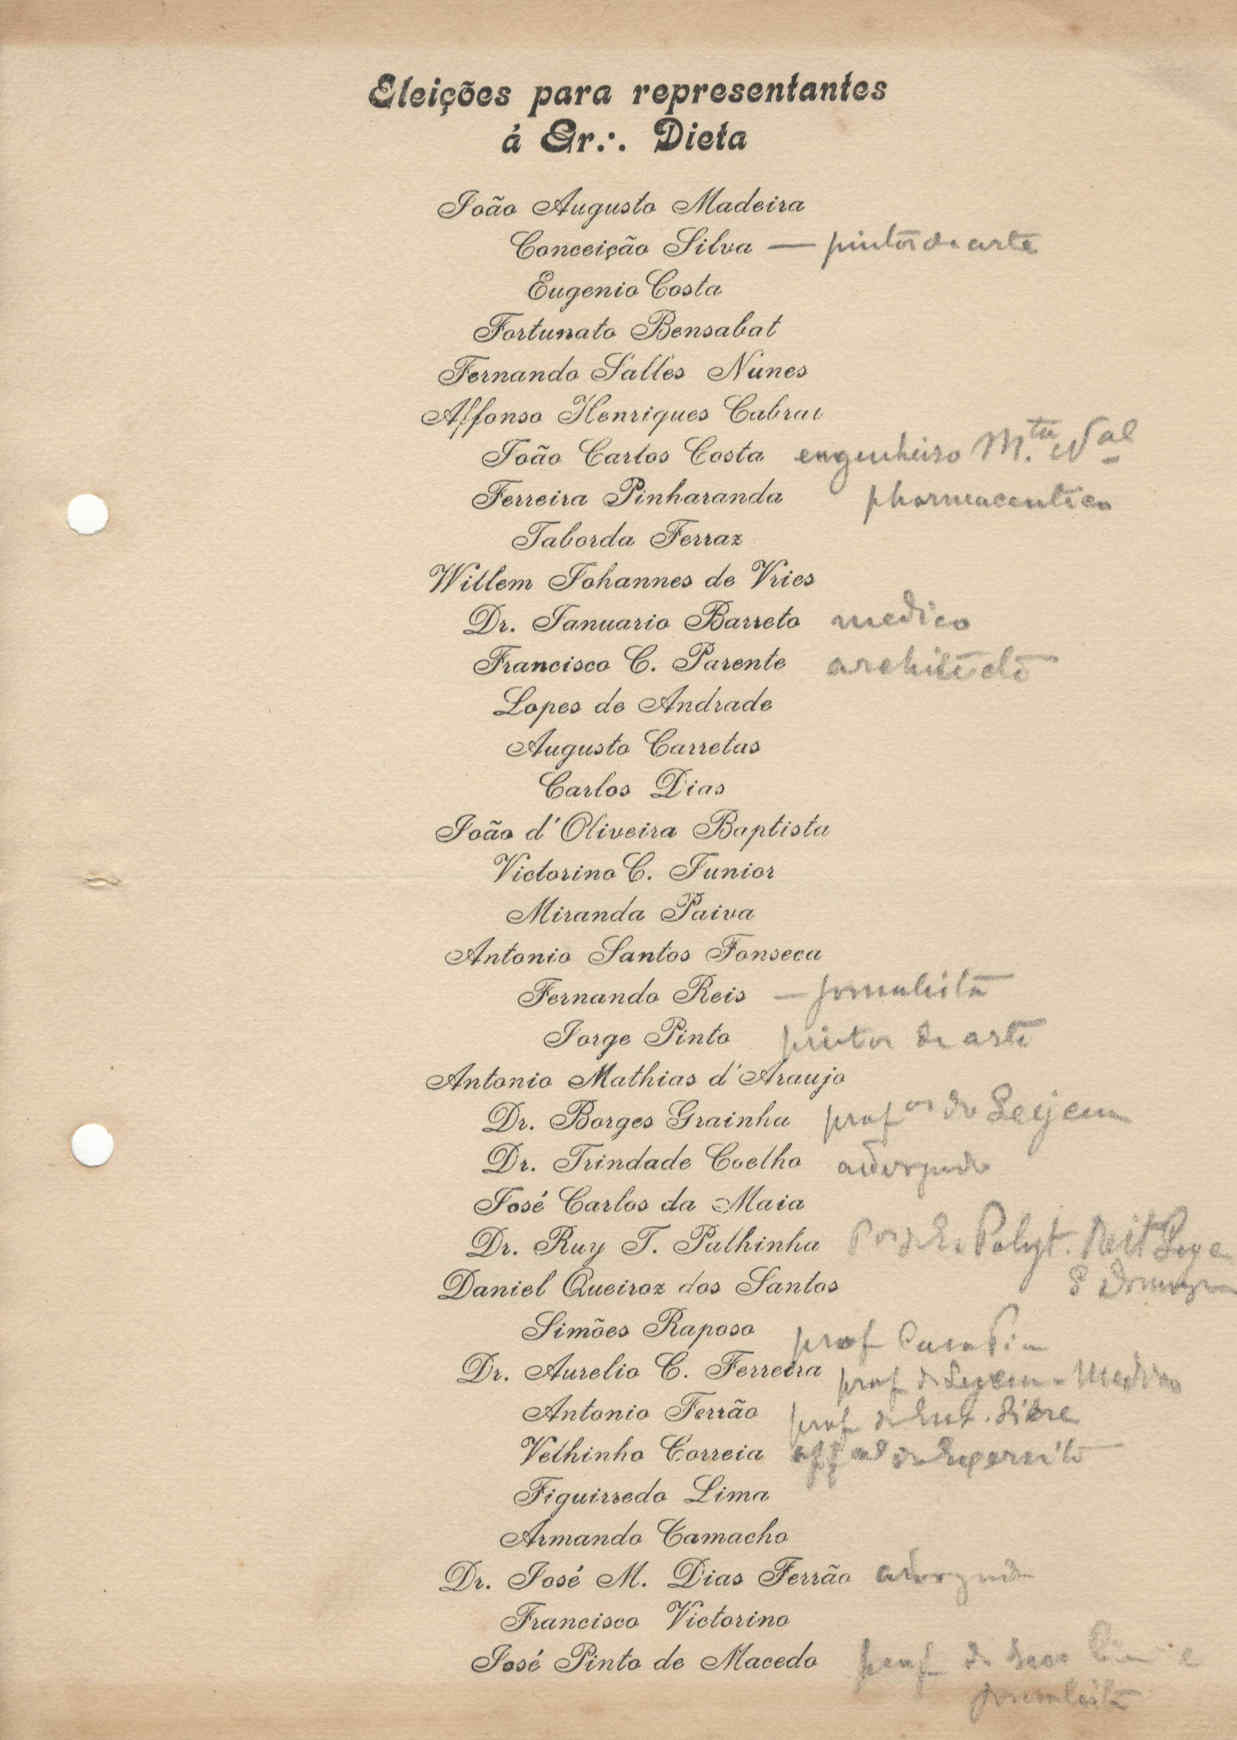 Eleições para representantes
á Gr∴ Dieta
João Augusto Madeira
Conceição Silva — pintor de arte
Eugenio Costa
Fortunato Bensabat
Fernando Salles Nunes
Affonso Henriques Cabral
João Carlos Costa engenheiro M.ta Nal
Ferreira Pinharanda pharmaceutico
Taborda Ferraz
Willem Johannes de Vries
Dr. Januario Barreto medico
Francisco C. Parente architecto
Lopes de Andrade
Augusto Carretas
Carlos Dias
João d'Oliveira Baptista
Victorino C. Junior
Miranda Paiva
Antonio Santos Fonseca
Fernando Reis — jornalista
Jorge Pinto pintor de arte
Antonio Mathias d'Araujo
Dr. Borges Grainha prof or do Lyceu
Dr. Trindade Coelho advogado
José Carlos da Maia
Dr. Ruy T. Palhinha Polyt.
Daniel Queiroz dos Santos
Simões Raposo prof Casa Pia
Dr. Aurelio C. Ferreira prof do Lyceu - Medico
Antonio Ferrão prof. Livre
Velhinho Correia off al do Exercito
Figuirredo Lima
Armando Camacho
Dr. José M. Dias Ferrão advogado
Francisco Victorino
José Pinto de Macedo prof. e
jornalista